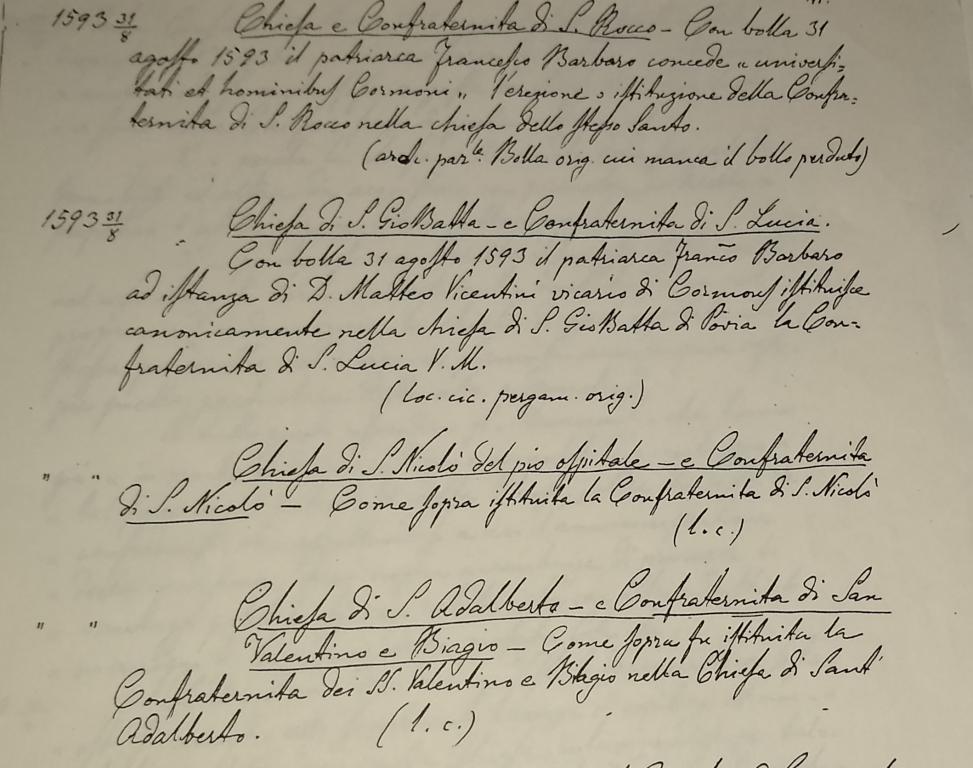 1593 31/8 Chiesa e Confraternita di S. Rocco - Con bolla 31
agosto 1593 il patriarca Francesco Barbaro concede „ universi-
tati et hominibus Cormoni „ l'erezione o istituzione della Confra-
ternita di S. Rocco nella chiesa dello stesso Santo.
(arch. par.le Bolla orig. cui manca il bollo perduto)
1593 31/8 Chiesa di S. GioBatta - e Confraternita di S. Lucia.
Con bolla 31 agosto 1593 il patriarca Franco Barbaro
ad istanza di D. Matteo Vicentini vicario di Cormons istituisce
canonicamente nella chiesa di S. GioBatta di Povia la Con-
fraternita di S. Lucia V. M.
(loc. cic. pergam. orig.)
„ „ Chiesa di S. Nicolò del pio ospitale - e Confraternita
di S. Nicolò - Come sopra istituita la Confraternita di S. Nicolò
(l. c.)
„ „ Chiesa di S. Adalberto - e Confraternita di San
Valentino e Biagio - Come sopra fu istituita la
Confraternita dei SS. Valentino e Biagio nella Chiesa di Sant'
Adalberto. (l. c.)